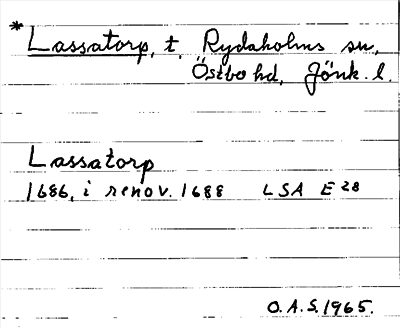 * Lassatorp, t. Rydaholms sn,
Östbo hd, Jönk. l.
Lassatorp
1686, i renov. 1688 LSA E 28
O.A.S. 1965.